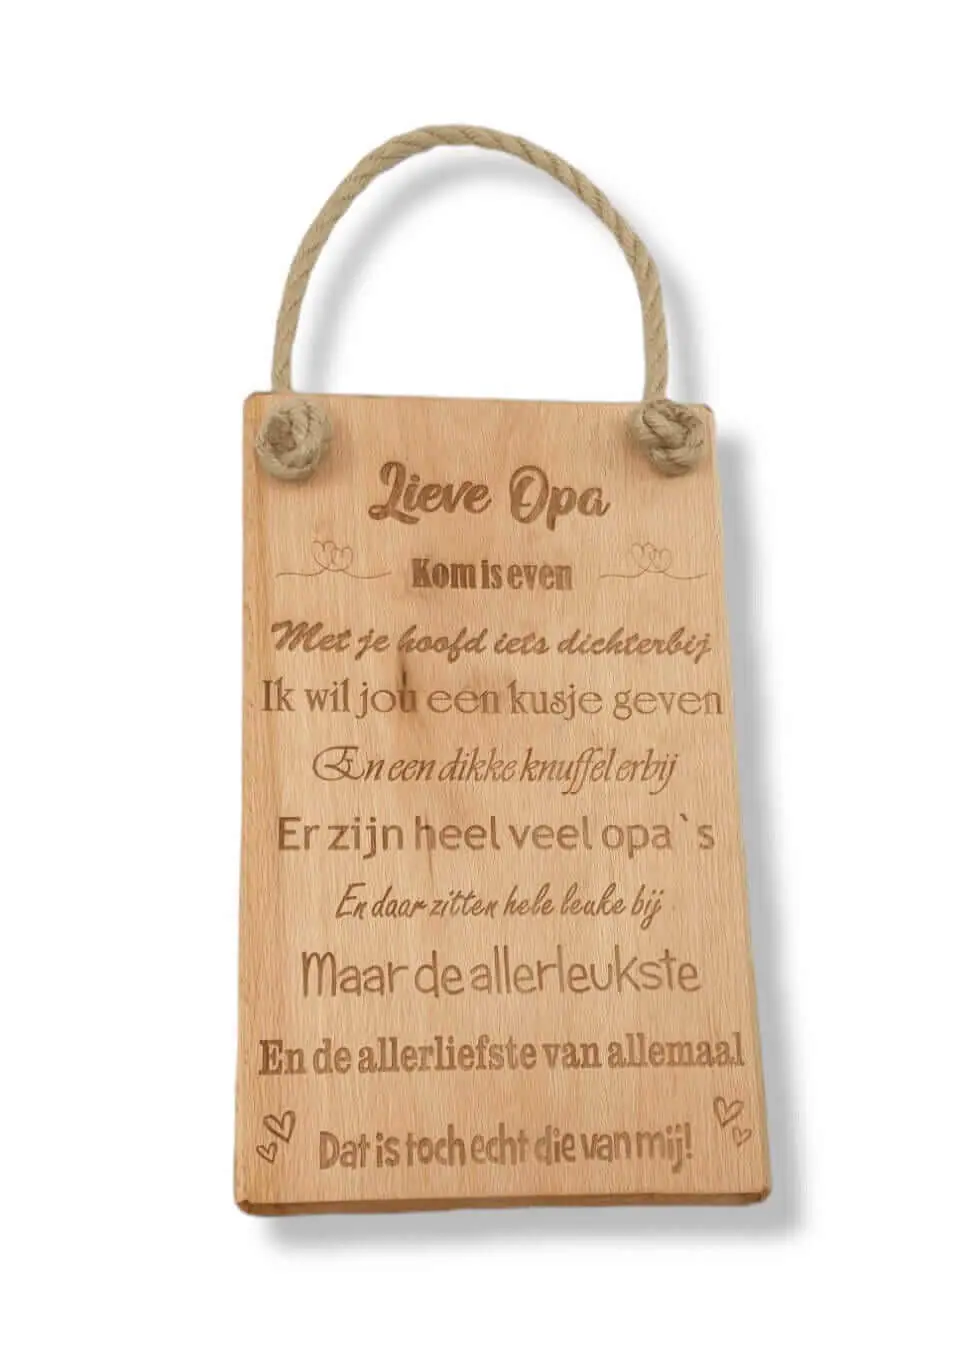 Lieve Opa
Kom is even
Met je hoofd iets dichterbij
Ik wil jou een kusje geven
En een dikke knuffel erbij
Er zijn heel veel opa`s
En daar zitten hele leuke bij
Maar de allerleukste
En de allerliefste van allemaal
Dat is toch echt die van mij!